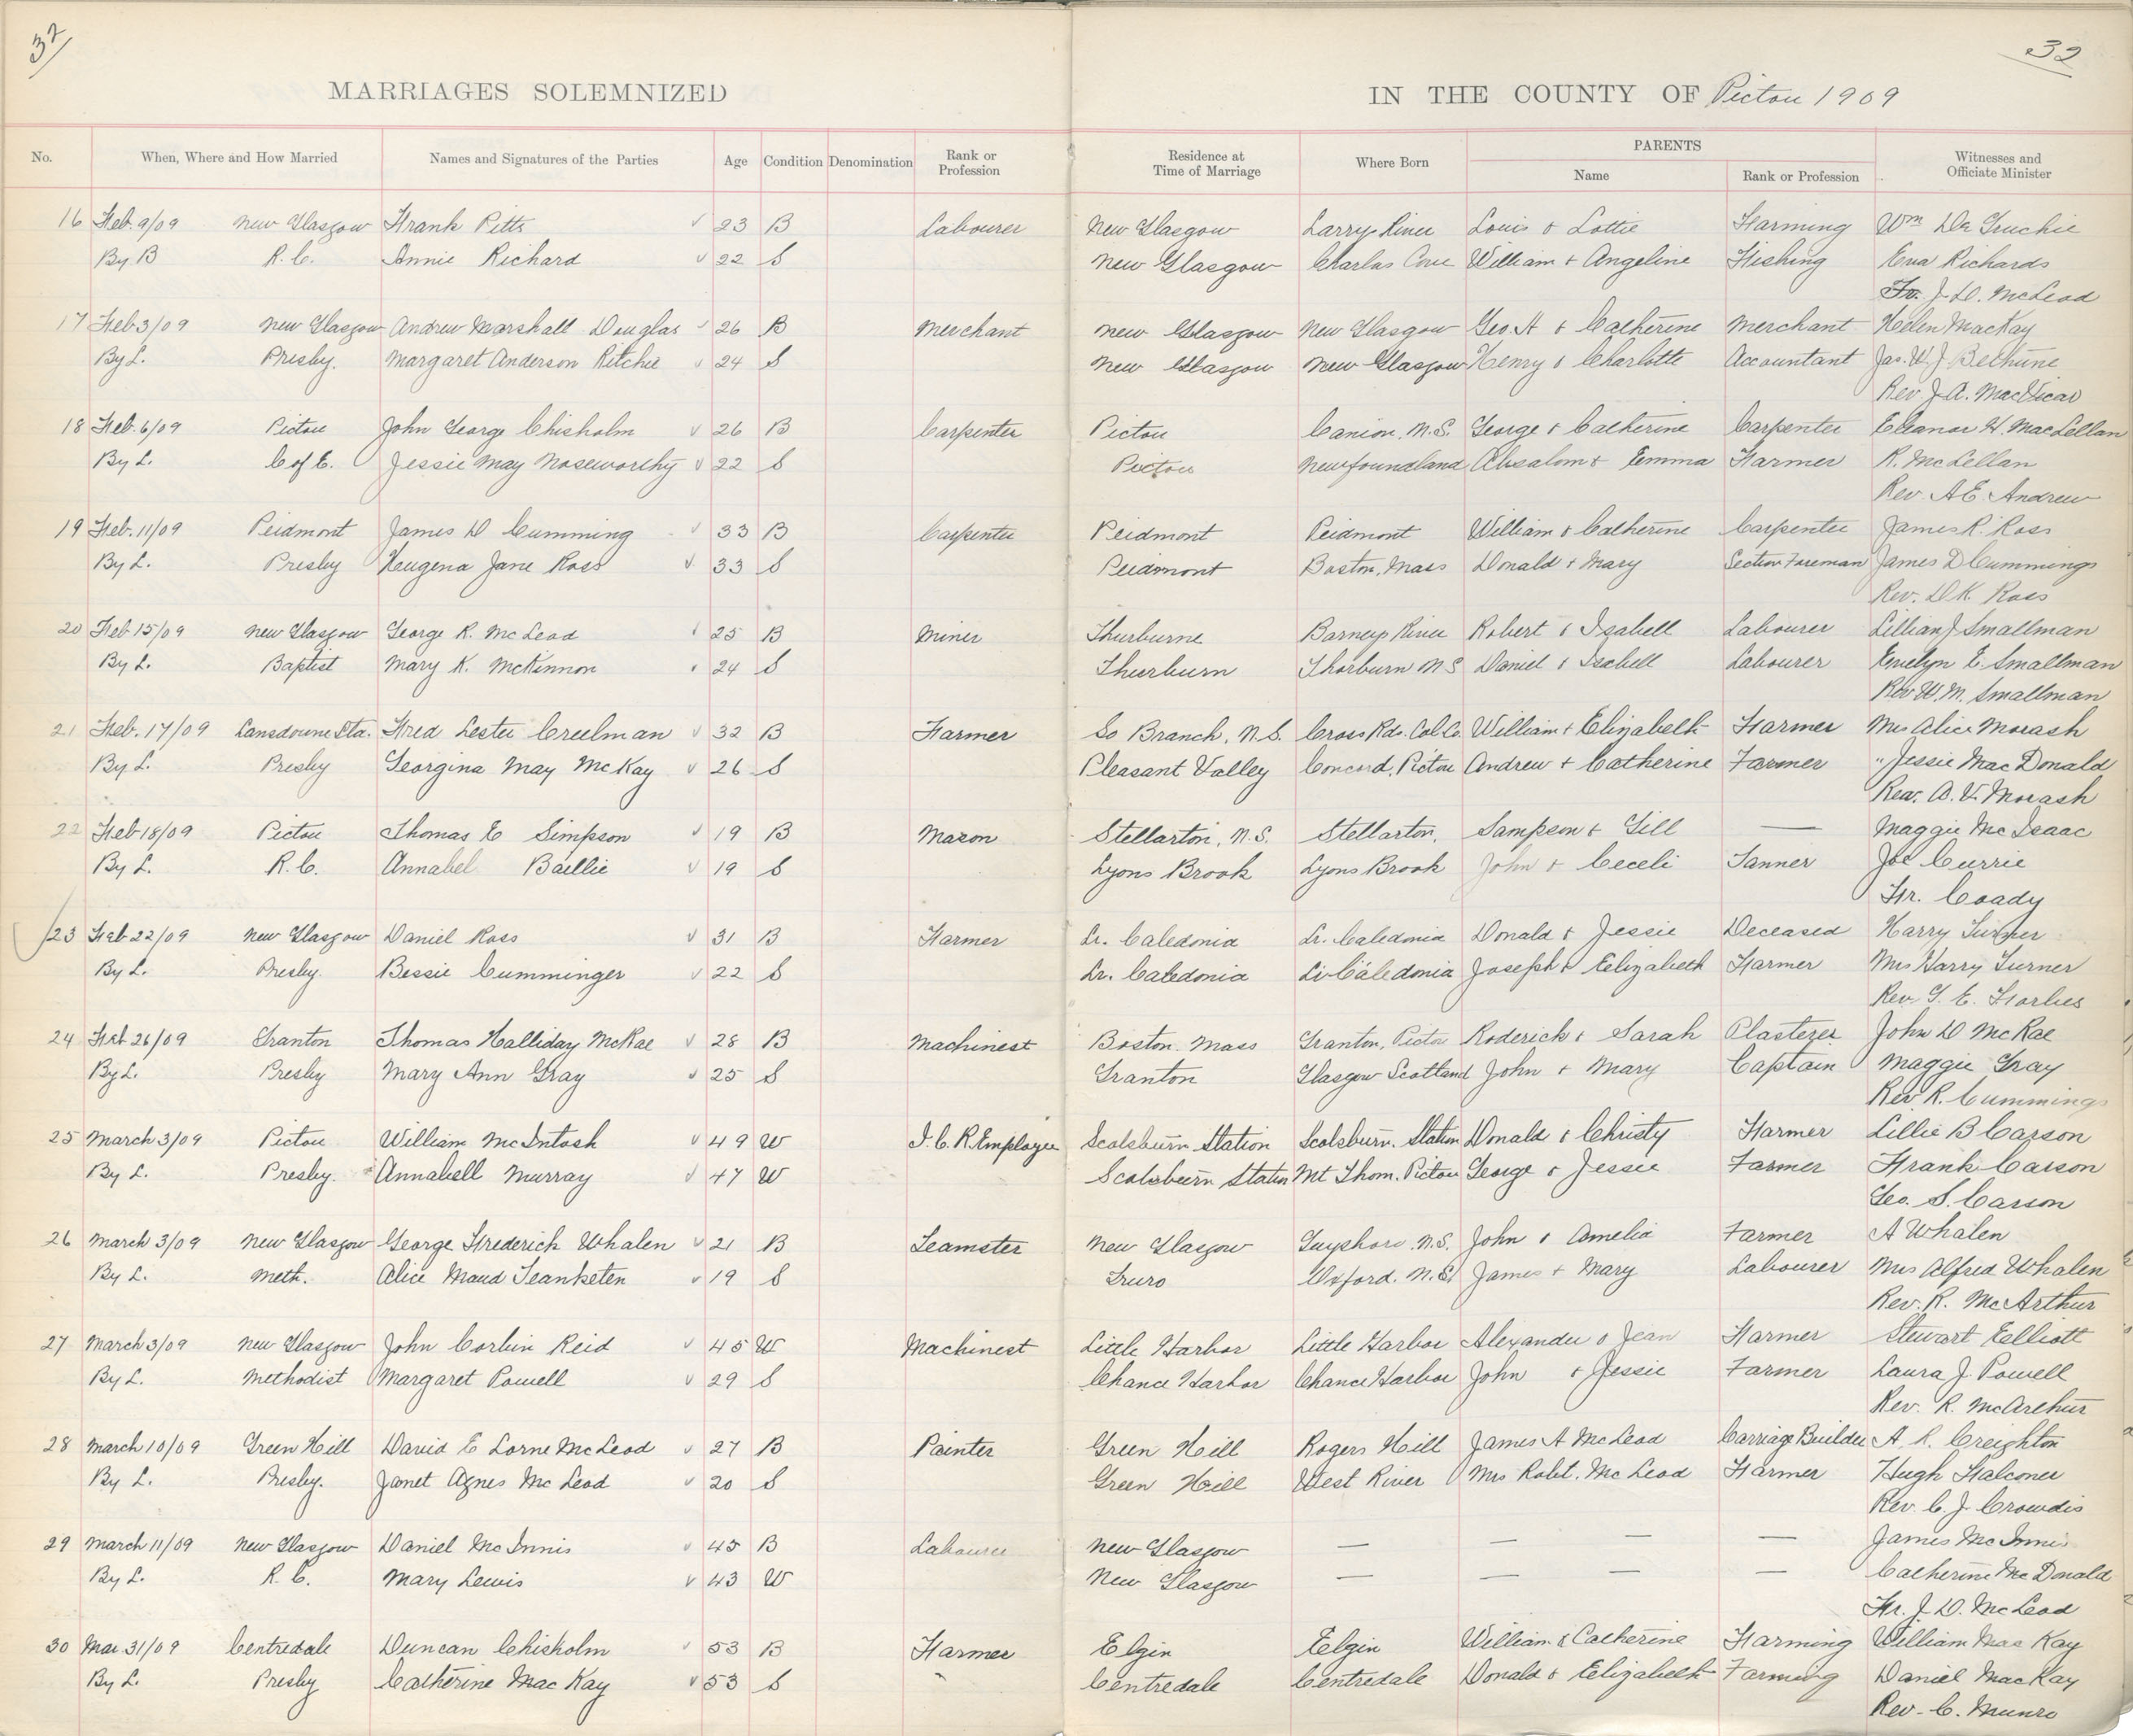 32
32
MARRIAGES SOLEMNIZED IN THE COUNTY OF Pictou 1909
No. When, Where and How Married Names and Signatures of the Parties Age Condition Denomination Rank or Profession Residence at Time of Marriage Where Born PARENTS Name Rank or Profession Witnesses and Officiate Minister
16 Feb. 9/09 New Glasgow Frank Pitts 23 B Labourer New Glasgow Larrys River Louis & Lottie Farming Wm De Gruchie
By B R. C. Annie Richard 22 S New Glasgow Charlos Cove William & Angeline Fishing Eva Richards
Fr. J. D. McLeod
17 Feb 3/09 New Glasgow Andrew Marshall Douglas 26 B Merchant New Glasgow New Glasgow Geo. H & Catherine Merchant Helen MacKay
By L. Presby. Margaret Anderson Ritchie 24 S New Glasgow New Glasgow Henry & Charlotte Accountant Jas. W. J Bethune
Rev. J. A. MacVicar
18 Feb. 6/09 Pictou John George Chisholm 26 B Carpenter Pictou N.S. George & Catherine Carpenter Eleanor H. MacLellan
By L. C of E. Jessie May Noseworthy 22 S Pictou Newfoundland Absalom & Emma Farmer R. McLellan
Rev. A E. Andrew
19 Feb. 11/09 Peidmont James D Cumming 33 B Carpenter Peidmont Peidmont William & Catherine Carpenter James R. Ross
By L. Presby Heugena Jane Ross 33 S Peidmont Boston, Mass Donald & Mary Section Foreman James D Cummings
Rev. D K. Ross
20 Feb 15/09 New Glasgow George R. McLeod 25 B Miner Thurburne Barneys River Robert & Isabell Labourer Lillian J Smallman
By L. Baptist Mary K. McKinnon 24 S Thurburn Thorburn N S Daniel & Isabell Labourer Evelyn E. Smallman
Rev W. M. Smallman
21 Feb. 17/09 Lansdowne Sta. Fred Lester Creelman 32 B Farmer So Branch, N.S. Cross Rds. Col. Co. William & Elizabeth Farmer Mrs Alice Morash
By L. Presby Georgina May McKay 26 S Pleasant Valley Concord, Pictou Andrew & Catherine Farmer " Jessie MacDonald
Rev. A. V. Morash
22 Feb 18/09 Pictou Thomas E Simpson 19 B Mason Stellarton, N.S. Stellarton, Sampson & Gill — Maggie McIsaac
By L. R. C. Annabel Baillie 19 S Lyons Brook Lyons Brook John & Ceceli Tanner Joe Currie
Fr. Coady
23 Feb 22/09 New Glasgow Daniel Ross 31 B Farmer Lr. Caledonia Lr. Caledonia Donald & Jessie Deceased Harry Turner
By L. Presby. Bessie Cumminger 22 S Lr. Caledonia Lr Caledonia Joseph & Eelizabeth Farmer Mrs Harry Turner
Rev. G. E. Forbes
24 Feb 26/09 Granton Thomas Halliday McRae 28 B Machinest Boston. Mass Granton, Pictou Roderick & Sarah Plasterer John D McRae
By L. Presby Mary Ann Gray 25 S Granton Glasgow Scotland John & Mary Captain Maggie Gray
Rev R. Cummings
25 March 3/09 Pictou William McIntosh 49 W I. C. R Employee Scotsburn Station Scotsburn. Station Donald & Christy Farmer Lillie B Carson
By L. Presby. Annabell Murray 47 W Scotsburn Station Mt Thom, Pictou George & Jessie Farmer Frank Carson
Geo. S. Carson
26 March 3/09 New Glasgow George Frederick Whalen 21 B Teamster New Glasgow Guysboro. N.S. John & Amelia Farmer A Whalen
By L. Meth. Alice Maud 19 S Truro Oxford. N.S. James & Mary Labourer Mrs Alfred Whalen
Rev. R. McArthur
27 March 3/09 New Glasgow John Corbin Reid 45 W Machinest Little Harbor Little Harbor Alexander & Jean Farmer Stewart Eelliott
By L. Methodist Margaret Powell 29 S Chance Harbor Chance Harbor John & Jessie Farmer Laura J. Powell
Rev. R. McArthur
28 March 10/09 Green Hill David E Lorne McLeod 27 B Painter Green Hill Rogers Hill James A McLeod Carriage Builder A. R. Creighton
By L. Presby. Janet Agnes McLeod 20 S Green Hill West River Mrs Robt. McLeod Farmer Hugh Falconer
Rev. C. J. Crowdis
29 March 11/09 New Glasgow Daniel McInnis 45 B Labourer New Glasgow — — — — James McInnis
By L. R. C. Mary Lewis 43 W New Glasgow — — — — Catherine McDonald
Fr. J. D. McLeod
30 Mar 31/09 Centredale Duncan Chisholm 53 B Farmer Elgin Eelgin William & Catherine Farming William MacKay
By L. Presby Catherine MacKay 53 S Centredale Centredale Donald & Eelizabeth Farming Daniel MacKay
Rev. C. Munro